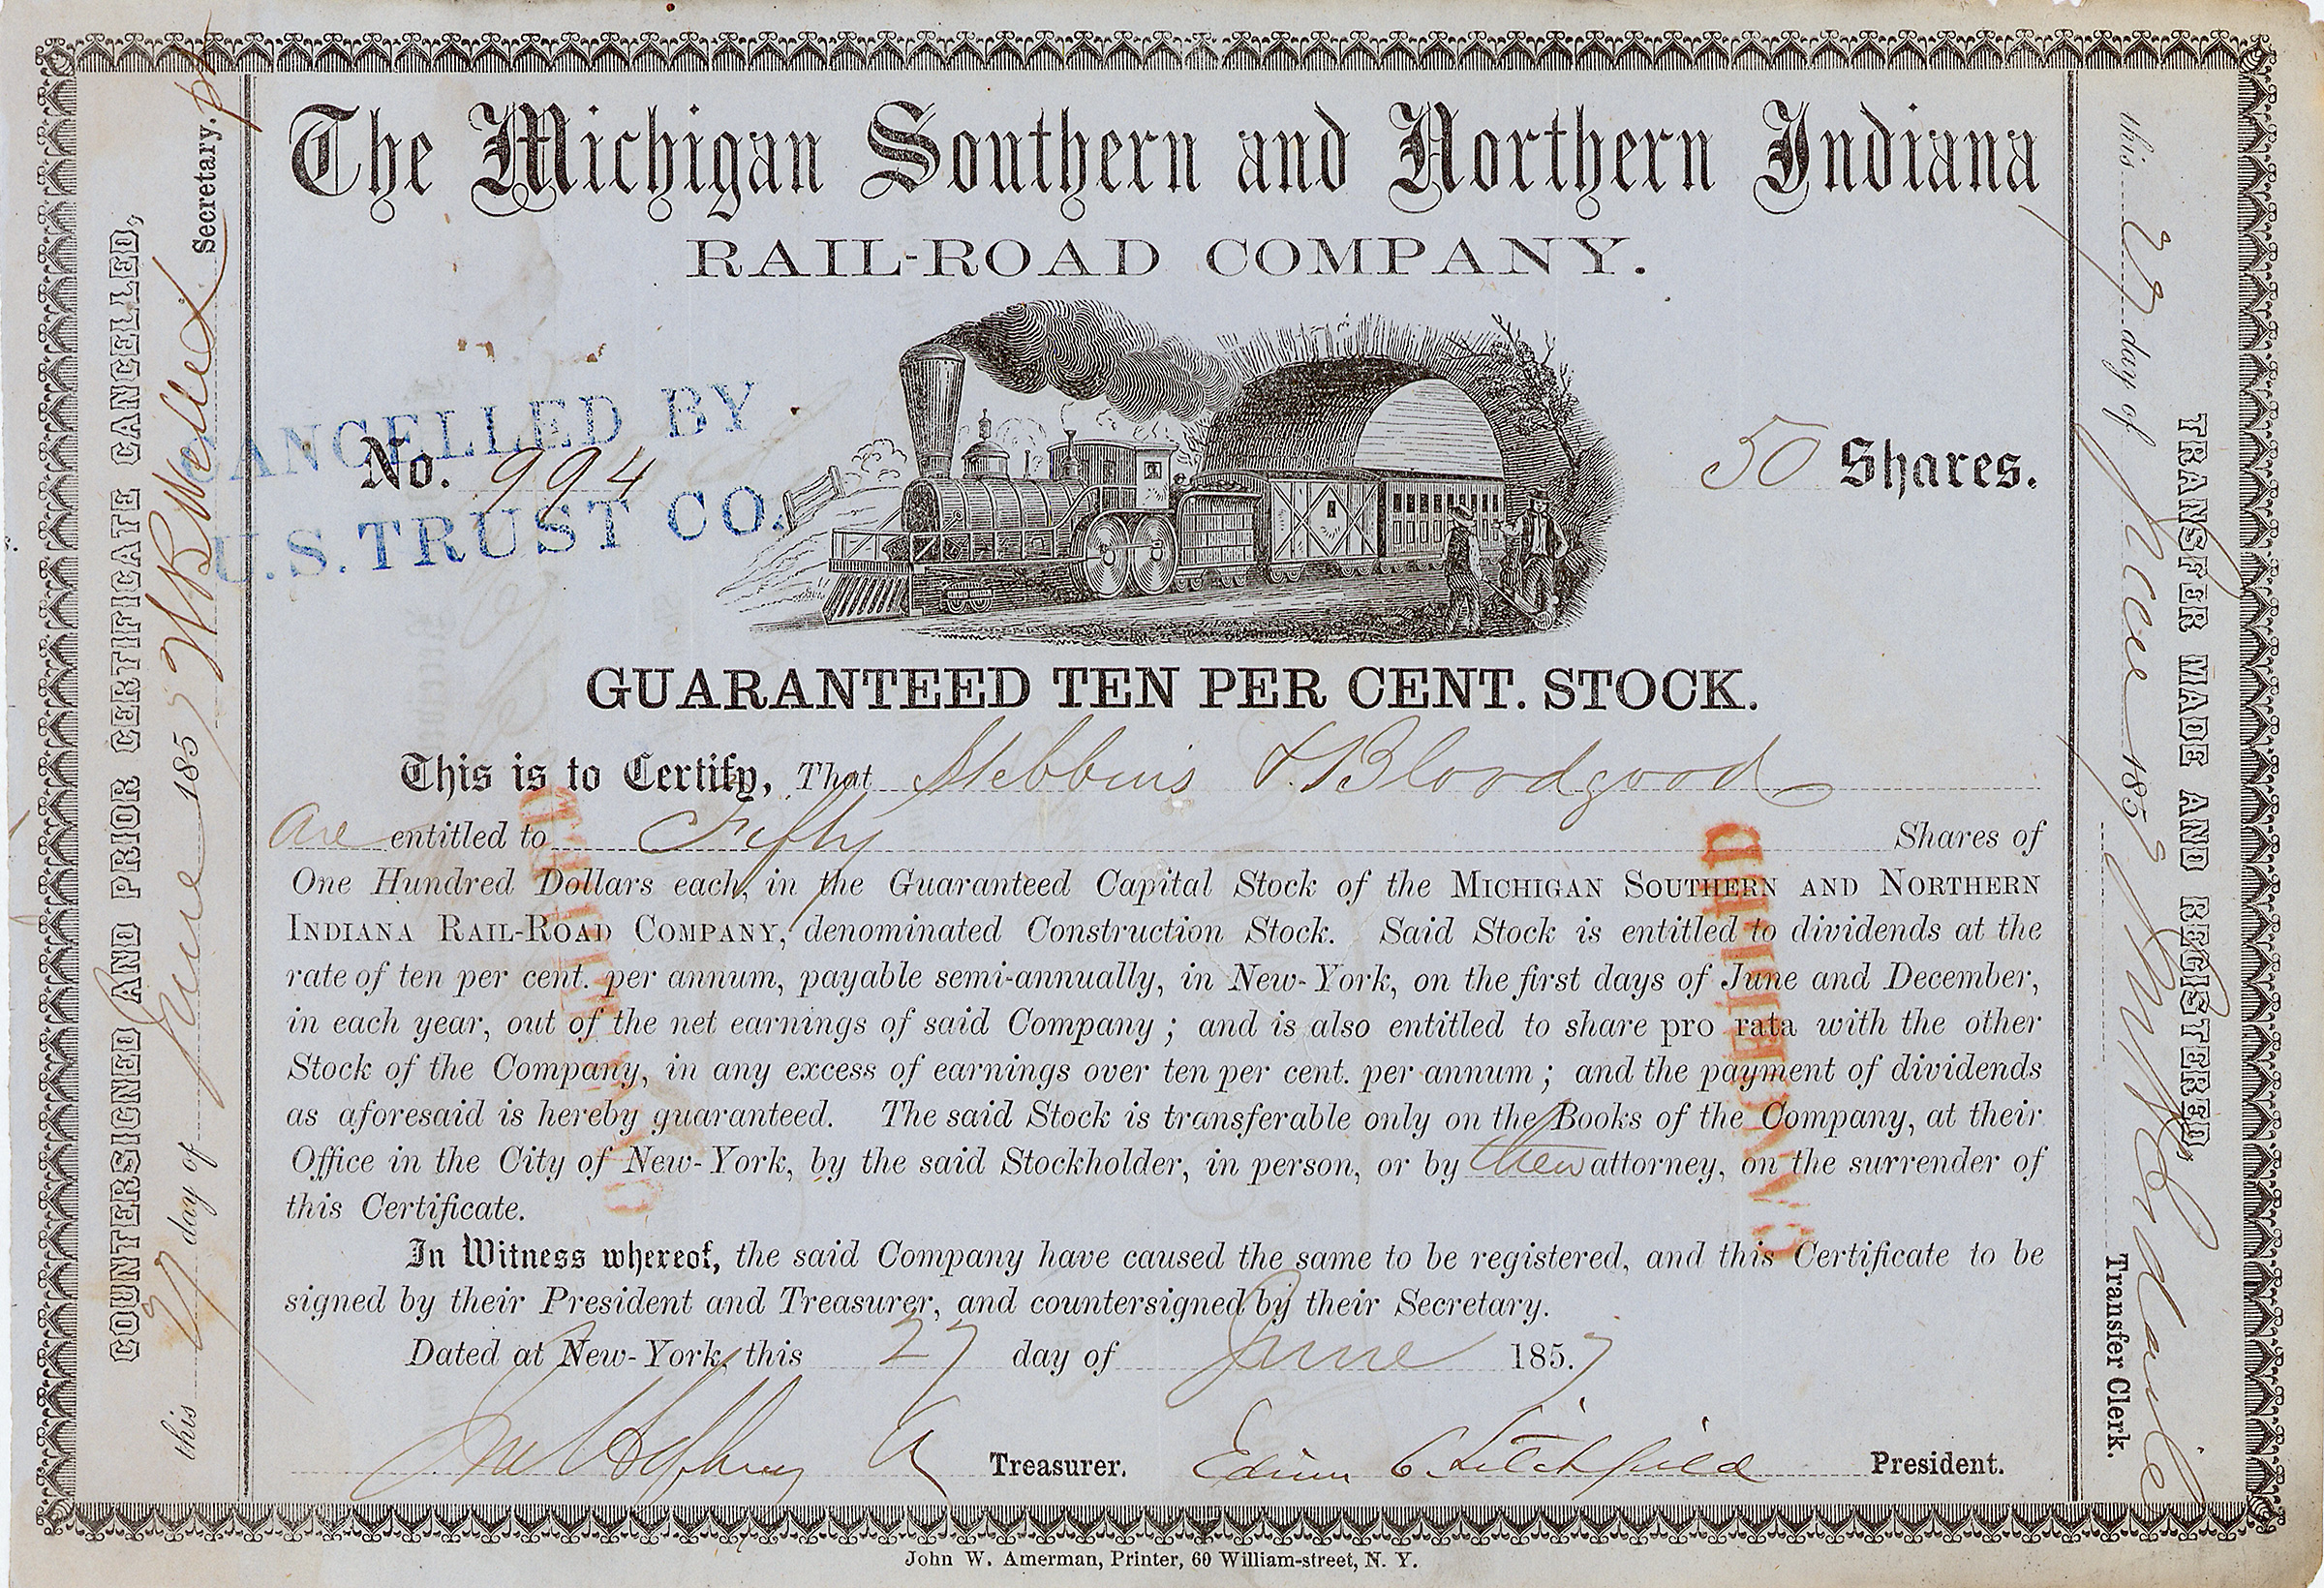 The Michigan Southern and Northern Indiana
RAIL-ROAD COMPANY.
CANCELLED BY
U.S. TRUST CO.
No. 994
50 Shares.
GUARANTEED TEN PER CENT. STOCK.
This is to Certify, That Stebbins & Bloodgood
are entitled to Fifty Shares of
One Hundred Dollars each, in the Guaranteed Capital Stock of the MICHIGAN SOUTHERN AND NORTHERN
INDIANA RAIL-ROAD COMPANY, denominated Construction Stock. Said Stock is entitled to dividends at the
rate of ten per cent. per annum, payable semi-annually, in New-York, on the first days of June and December,
in each year, out of the net earnings of said Company; and is also entitled to share pro rata with the other
Stock of the Company, in any excess of earnings over ten per cent. per annum; and the payment of dividends
as aforesaid is hereby guaranteed. The said Stock is transferable only on the Books of the Company, at their
Office in the City of New-York, by the said Stockholder, in person, or by their attorney, on the surrender of
this Certificate.
In Witness whereof, the said Company have caused the same to be registered, and this Certificate to be
signed by their President and Treasurer, and countersigned by their Secretary.
Dated at New-York, this 27 day of June 1857
Treasurer. Edwin C. Litchfield President.
COUNTERSIGNED AND PRIOR CERTIFICATE CANCELLED,
this 27 day of June 1857 Secretary.
TRANSFER MADE AND REGISTERED,
this 27 day of June 1857 Transfer Clerk.
John W. Amerman, Printer, 60 William-street, N. Y.